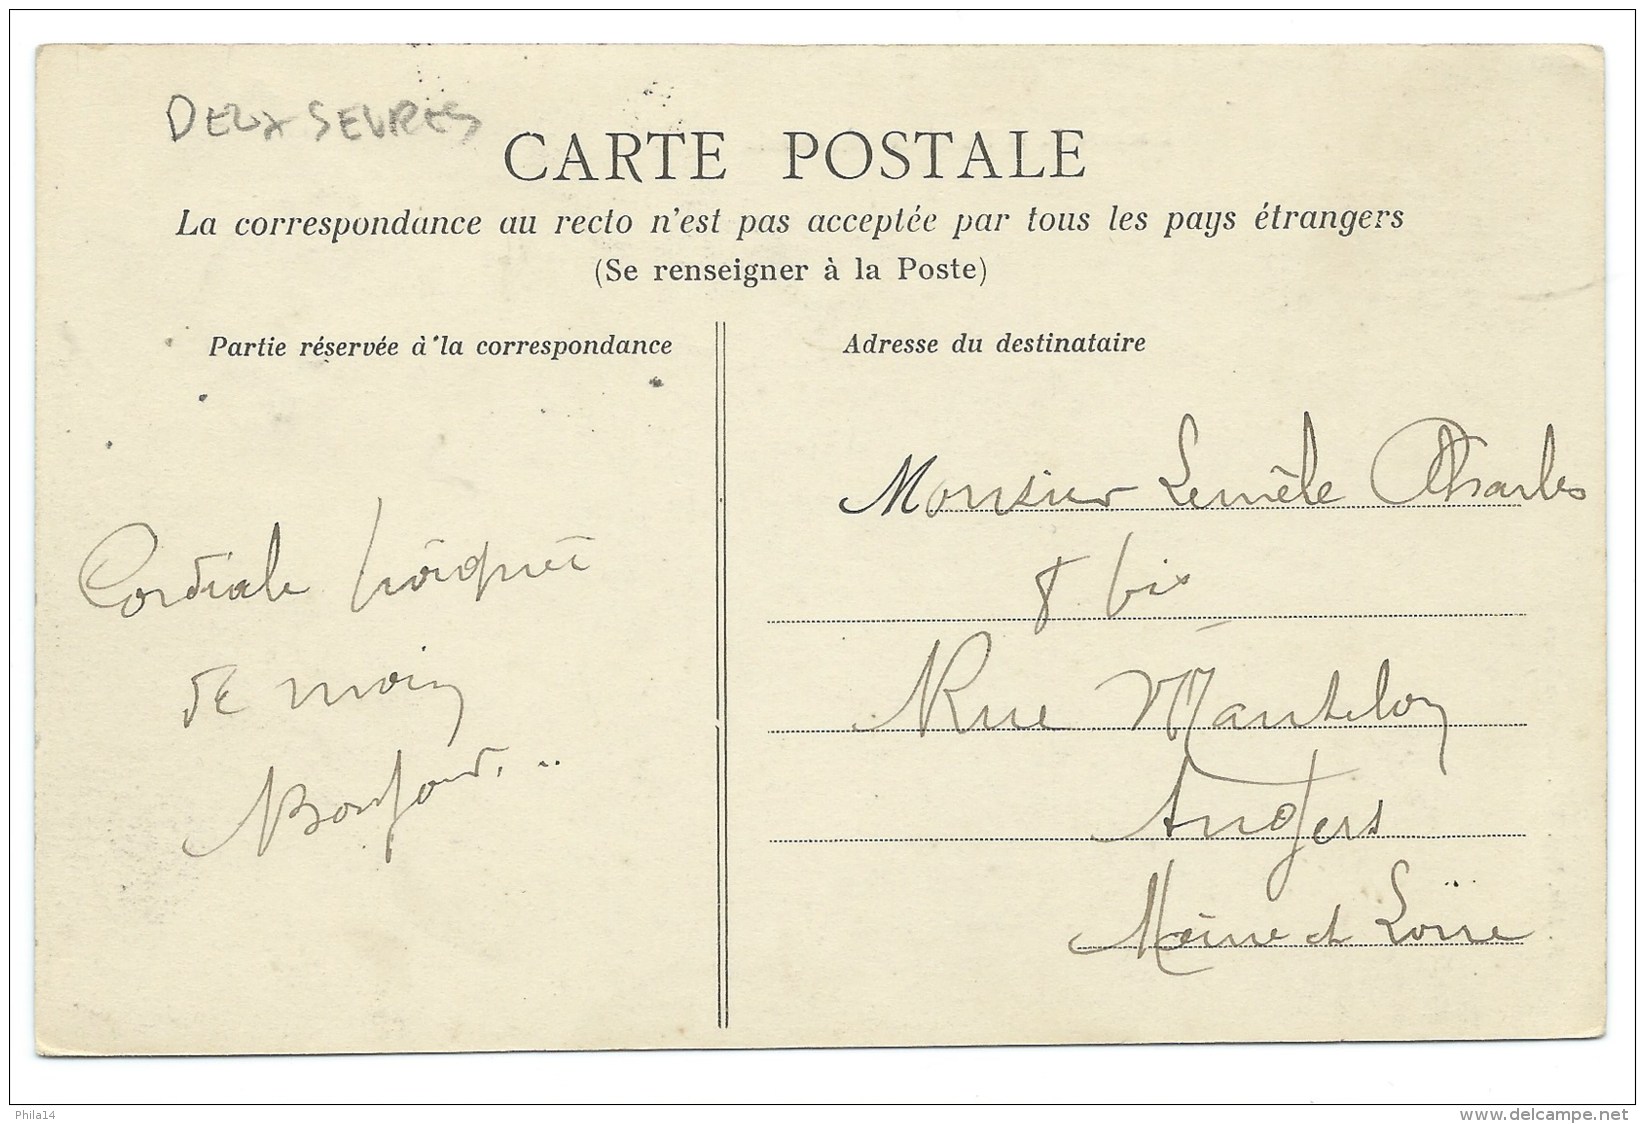 DEUX SEVRES
CARTE POSTALE
La correspondance au recto n'est pas acceptée par tous les pays étrangers
(Se renseigner à la Poste)
Partie réservée à la correspondance
Cordiale poignée
de main
Adresse du destinataire
Monsieur Lemèle Charles
8 bis
Rue Mantelon
Angers
Maine et Loire
Phila14
www.delcampe.net